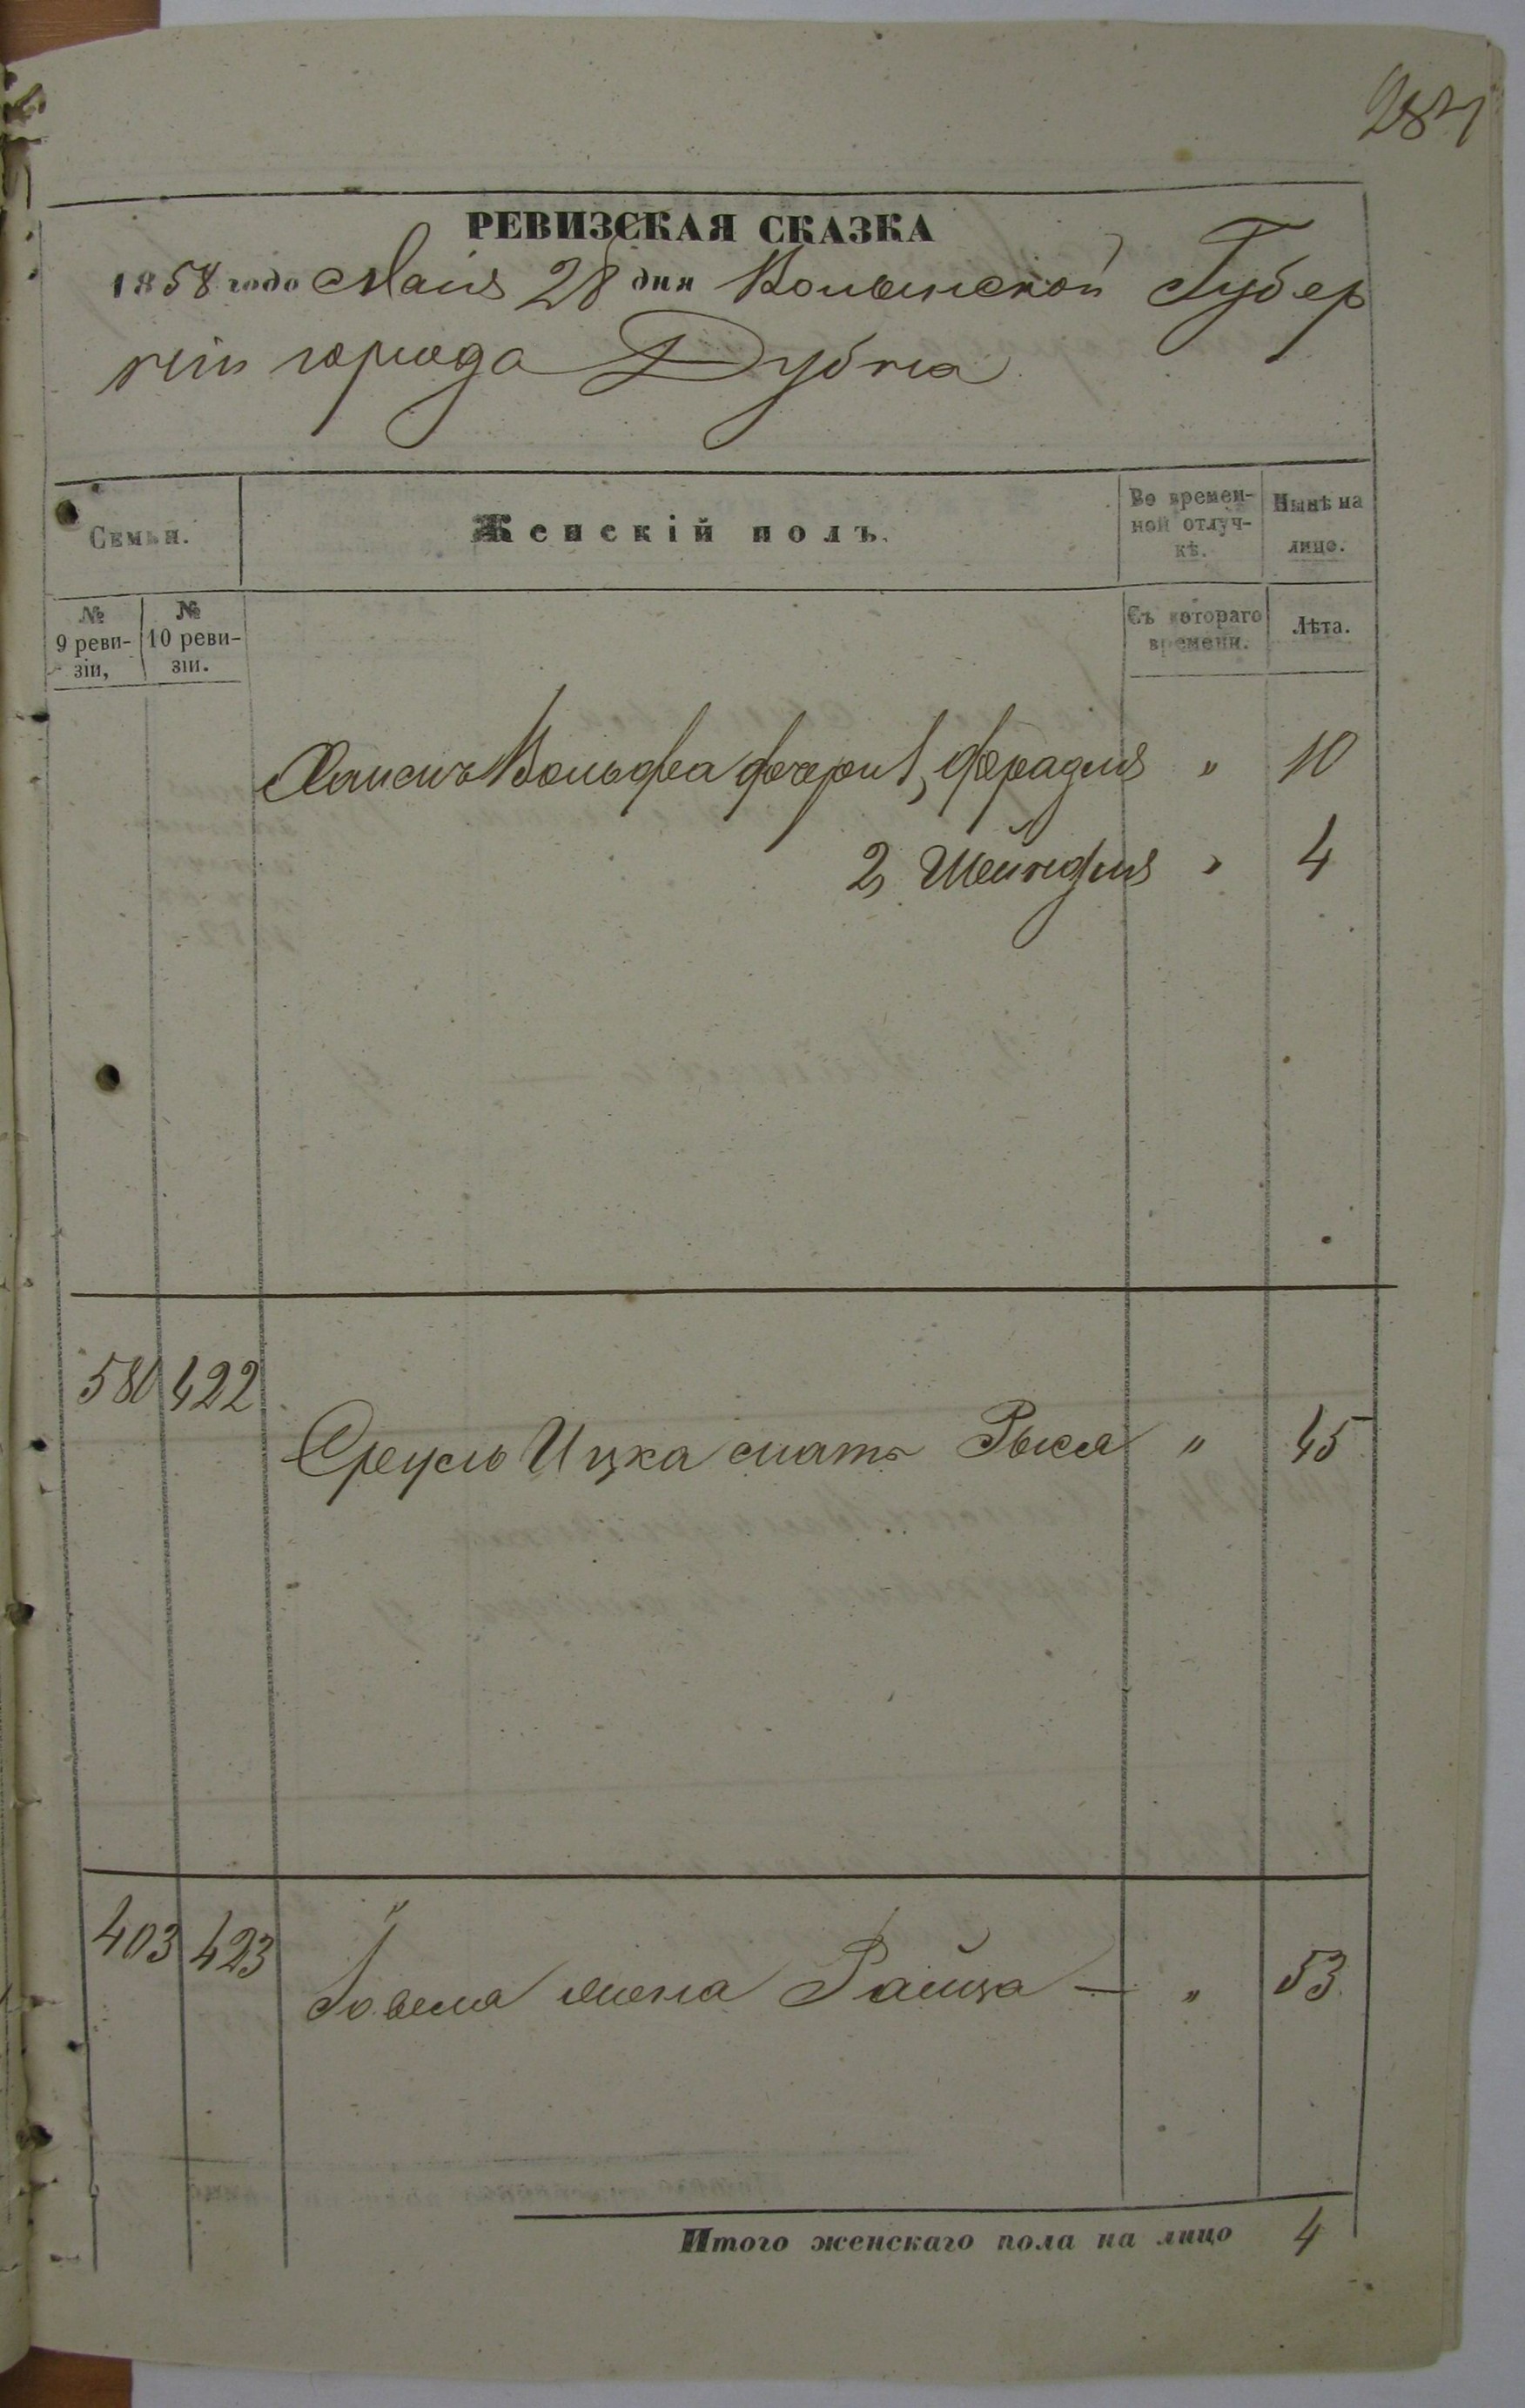 284
РЕВИЗСКАЯ СКАЗКА
1858 года Маія 28 дня Волынской Губер
ніи города Дубна
Семьи.
Женскій полъ.
Во времен-
ной отлуч-
кѣ.
Нынѣ на
лицо.
№
9 реви-
зіи,
№
10 реви-
зіи.
Съ котораго
времени.
Лѣта.
Вольфа дочери 1, Фрадля " 10
2, Шейндля " 4
580 422
Сруль Ицка мать Рыся " 45
403 423
жена Райца — " 53
Итого женскаго пола на лицо 4